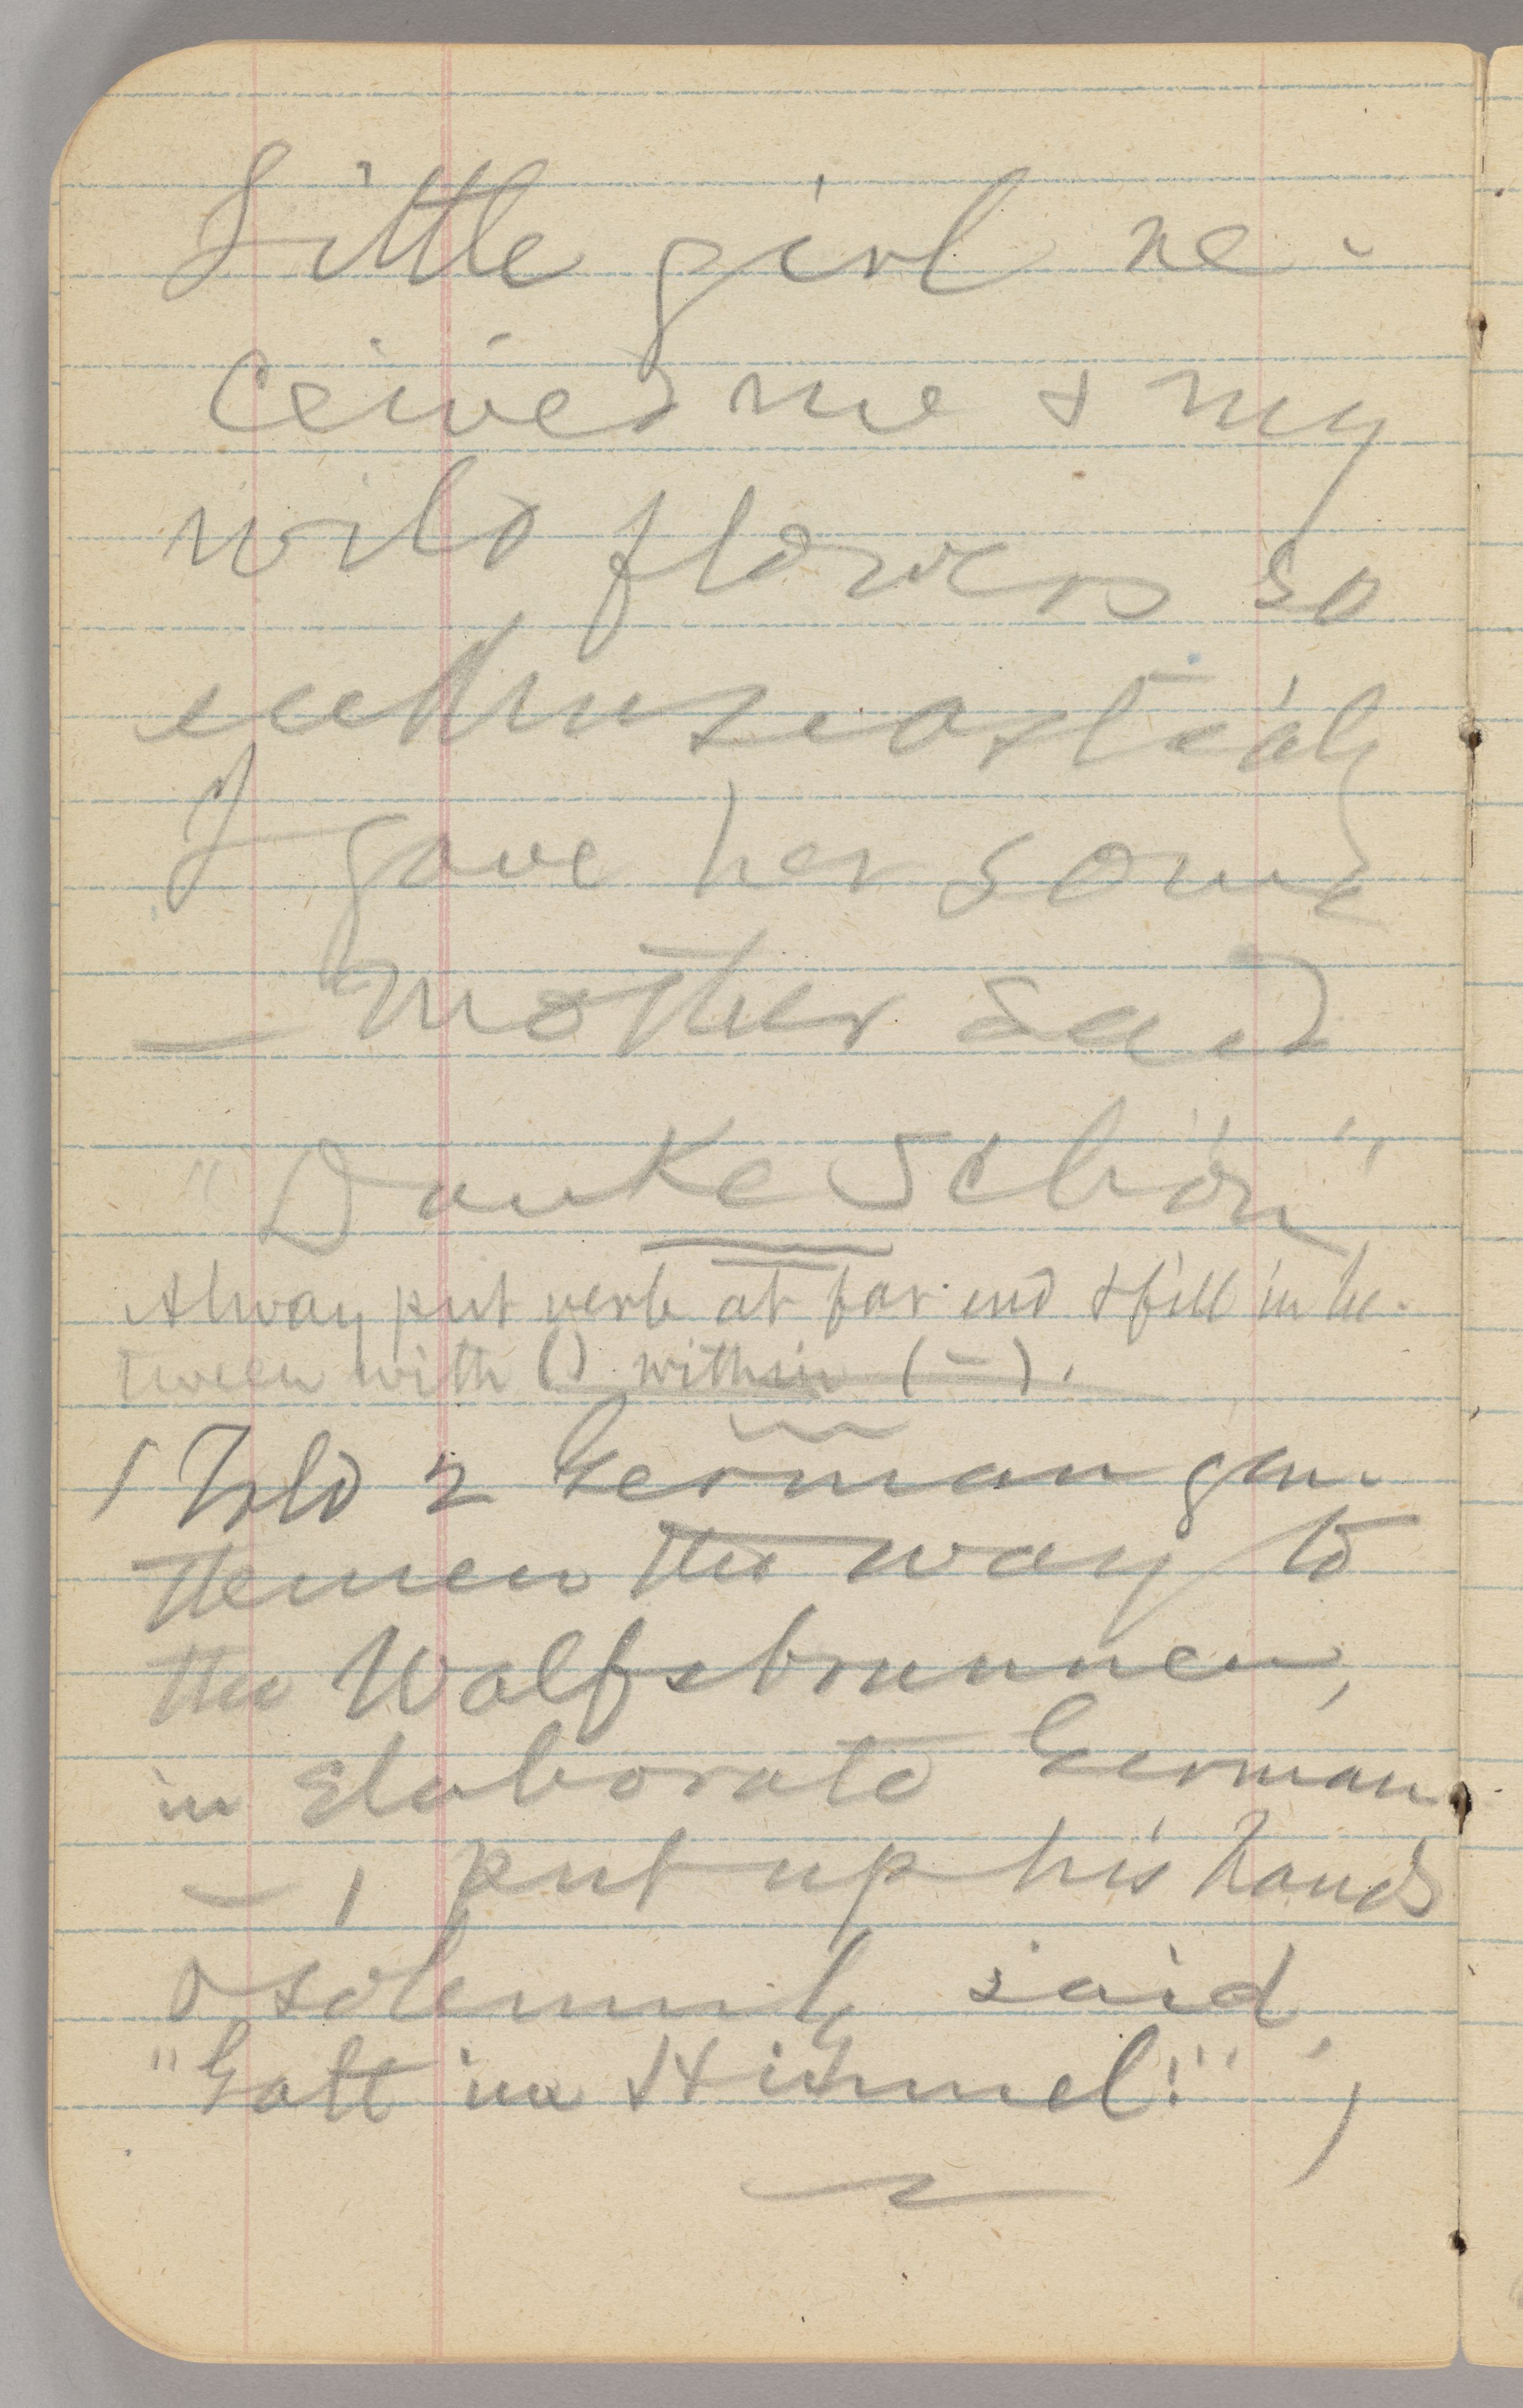 Little girl re-
ceived me & my
wild flowers so
enthusiasticaly
I gave her some
— mother said
"Danke Schön"
Alway put verb at far end & fill in be-
tween with () within (—).
Told 2 German gen-
tlemen the way to
the Wolfsbrunnen,
in elaborate German
— 1 put up his hands
& solemnly said,
"Gott im Himmel!"